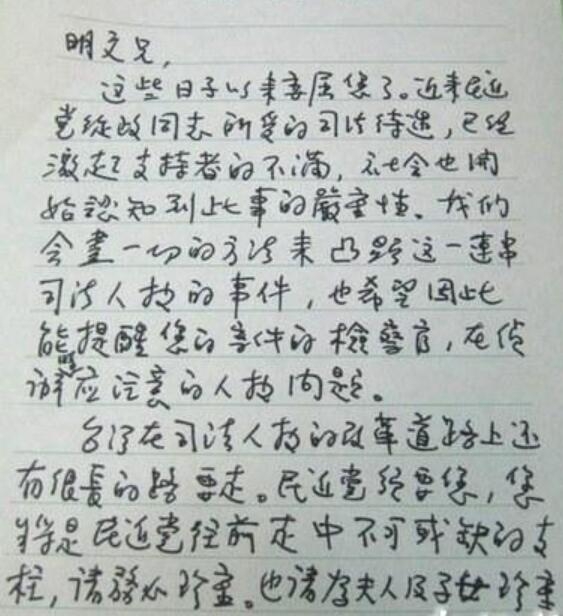 明文兄，
这些日子以来委屈您了。近来民进
党從政同志所受的司法待遇，已經
激起支持者的不滿，社会也開
始認知到此事的嚴重性。我们
会盡一切的方法来凸顯这一連串
司法人权的事件，也希望因此
能提醒您的案件的檢警官，在偵
辦时应注意的人权问题。
台湾在司法人权的改革道路上还
有很長的路要走。民进党須要您，您
将是民进党往前走中不可或缺的支
柱，請務必珍重。也請为夫人及子女珍重